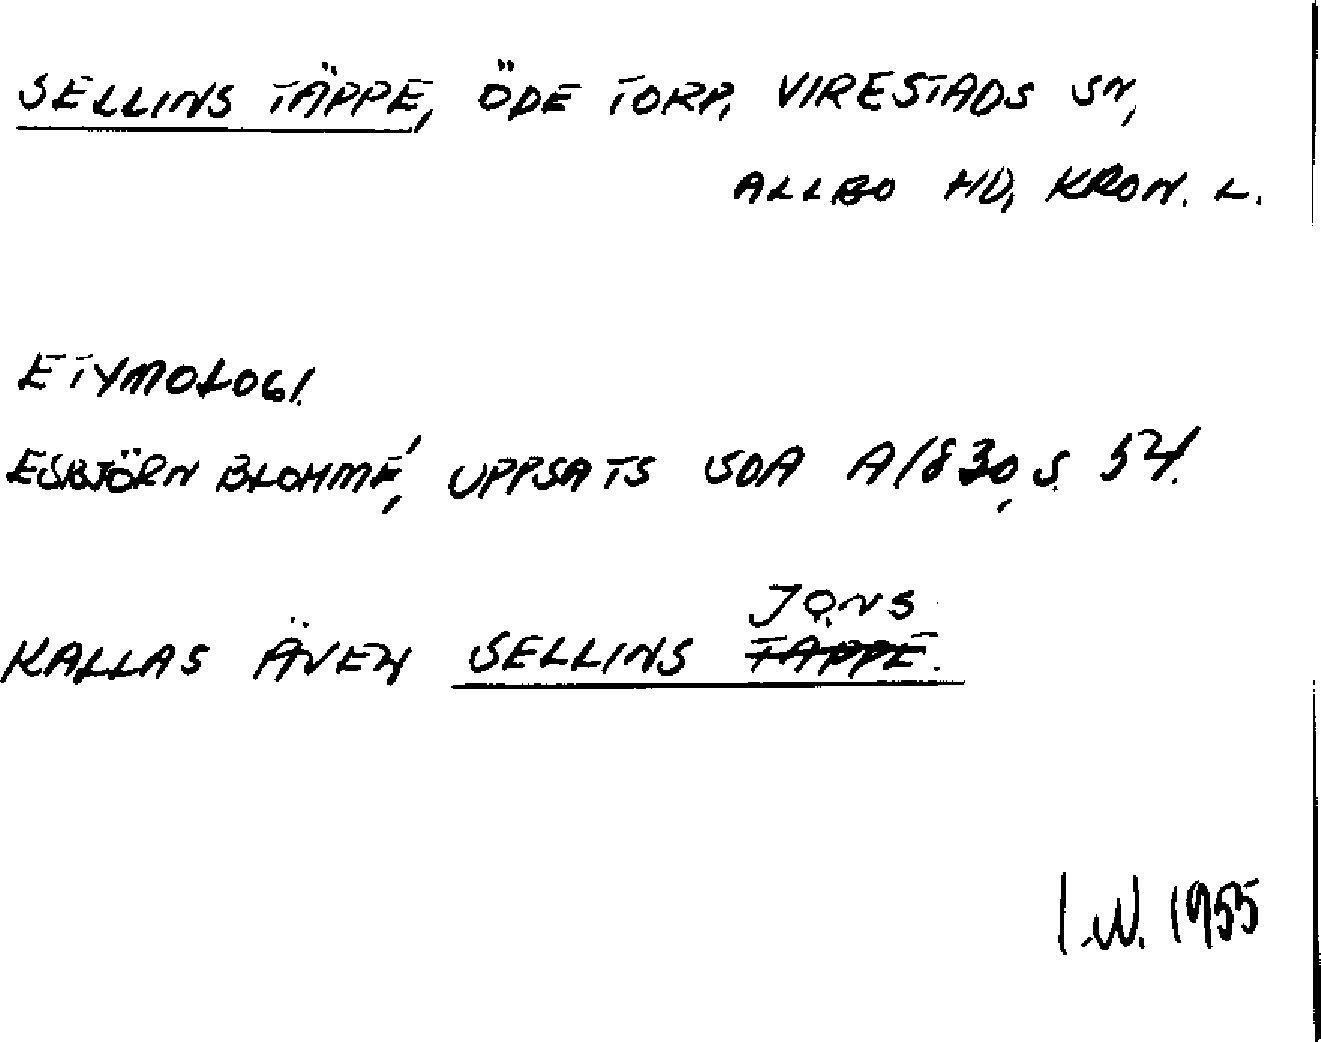 SELLINS TÄPPE, ÖDE TORP, VIRESTADS SN,
ALLBO HD, KRON. L.
ETYMOLOGI.
ESBJÖRN BLOMMÉ, UPPSATS SOA A/830, S. 54.
JÖNS
KALLAS ÄVEN SELLINS TÄPPE.
I.W. 1955